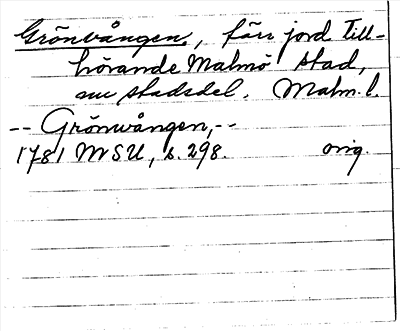 Grönvången, förr jord till-
hörande Malmö stad,
nu stadsdel. Malm. l.
-- Grönwången,--
1781 MSU, s. 298. orig.